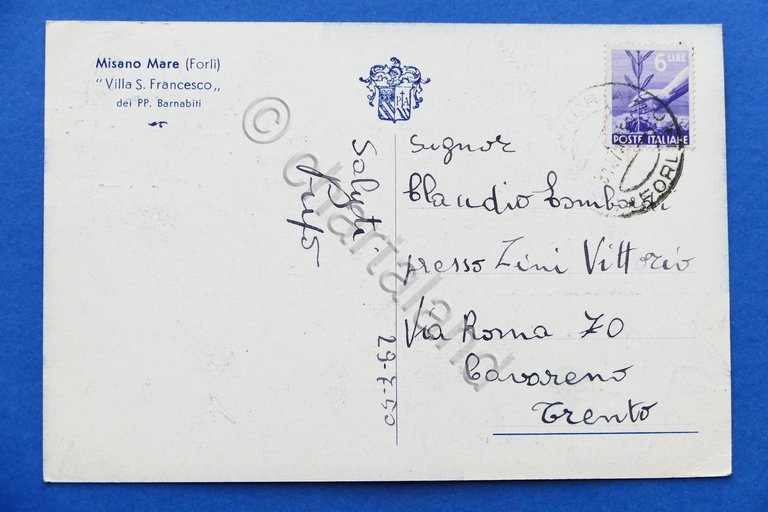 Misano Mare (Forlì)
"Villa S. Francesco„
dei PP. Barnabiti
6 LIRE
POSTE ITALIANE
FORLI
Saluti
29-7-50
Signor
Claudio Lombardi
presso Zini Vittorio
Via Roma 70
Cavareno
Trento
© chartaland